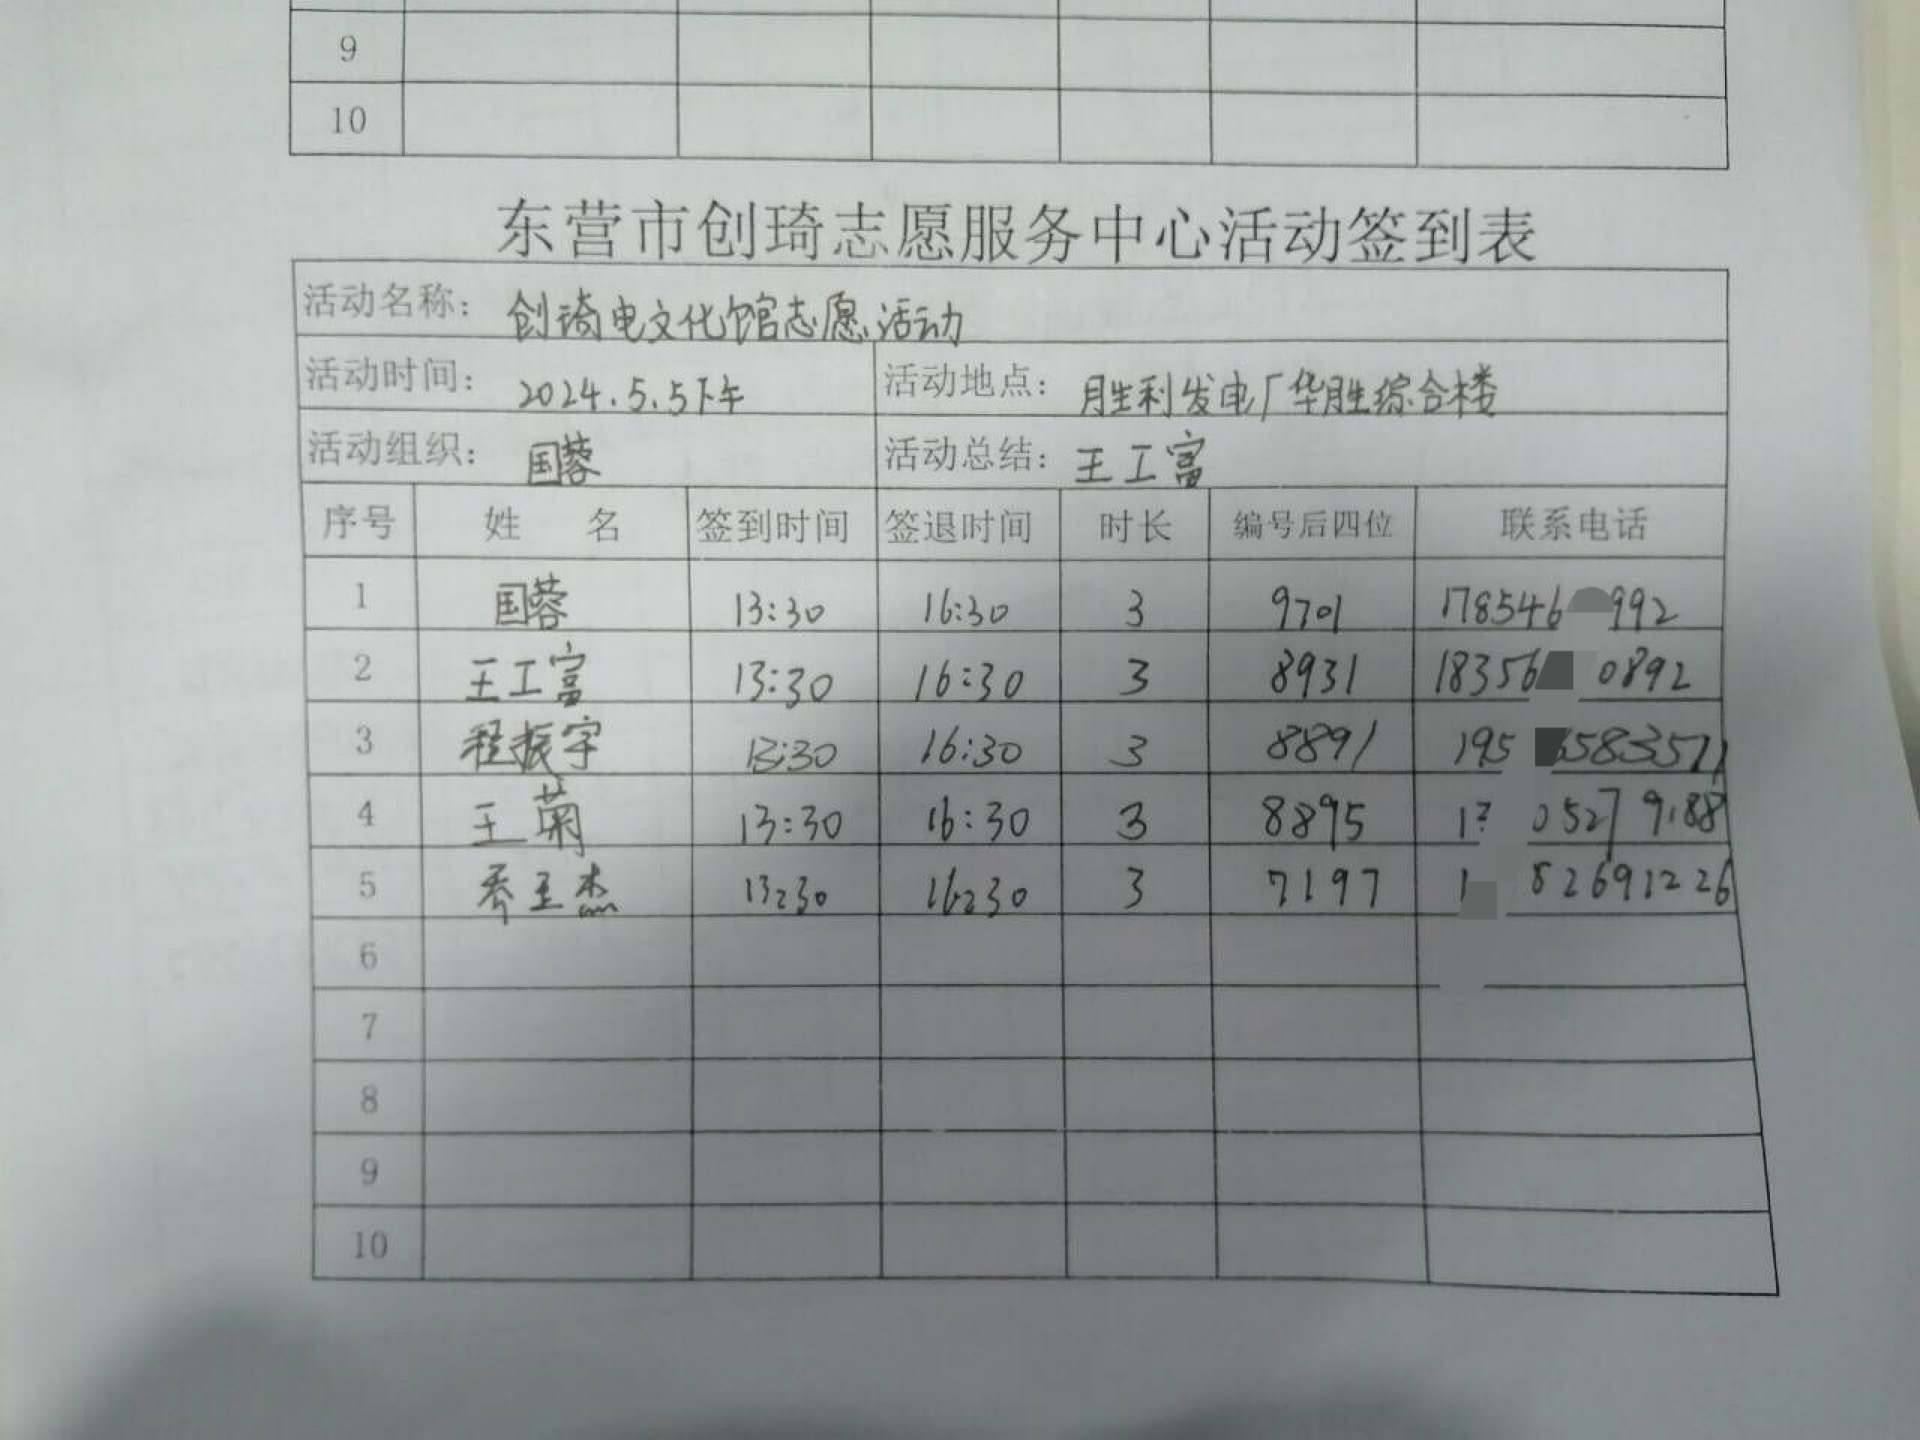 9
10
东营市创琦志愿服务中心活动签到表
活动名称： 创琦电文化馆志愿活动
活动时间： 2024.5.5下午 活动地点： 胜利发电厂华胜综合楼
活动组织： 国蓉 活动总结： 王工富
序号 姓 名 签到时间 签退时间 时长 编号后四位 联系电话
1 国蓉 13:30 16:30 3 9701 178546 992
2 王工富 13:30 16:30 3 8931 18356 0892
3 程振宇 13:30 16:30 3 8891 195 6583571
4 王菊 13:30 16:30 3 8895 13 05279188
5 乔玉杰 13:30 16:30 3 7197 1 82691226
6
7
8
9
10